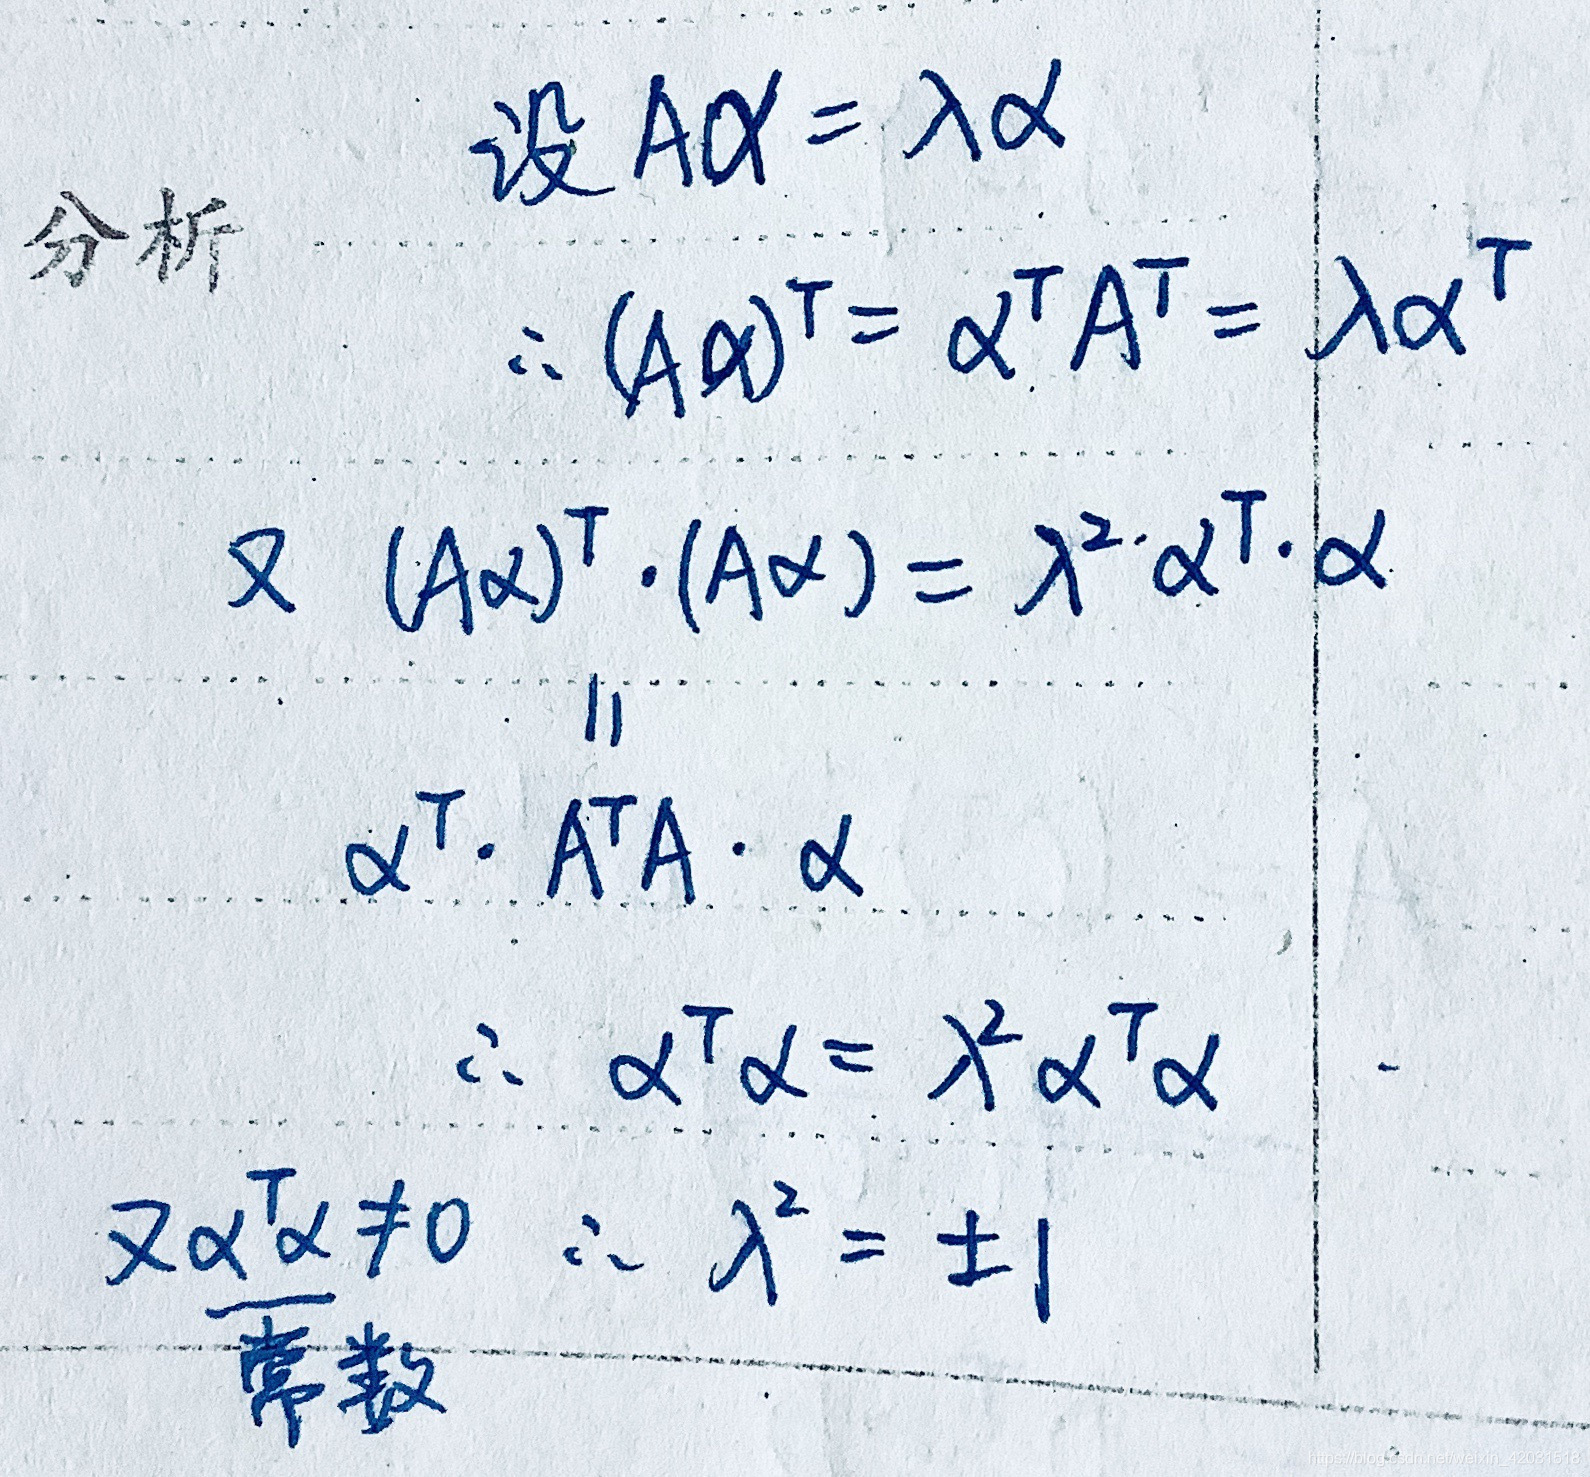 设 Aα = λα
分析
∴ (Aα)ᵀ = αᵀAᵀ = λαᵀ
又 (Aα)ᵀ·(Aα) = λ²·αᵀ·α
||
αᵀ· AᵀA · α
∴ αᵀα = λ²αᵀα
又αᵀα≠0 ∴ λ² = ±1
常数
https://blog.csdn.net/weixin_42031518